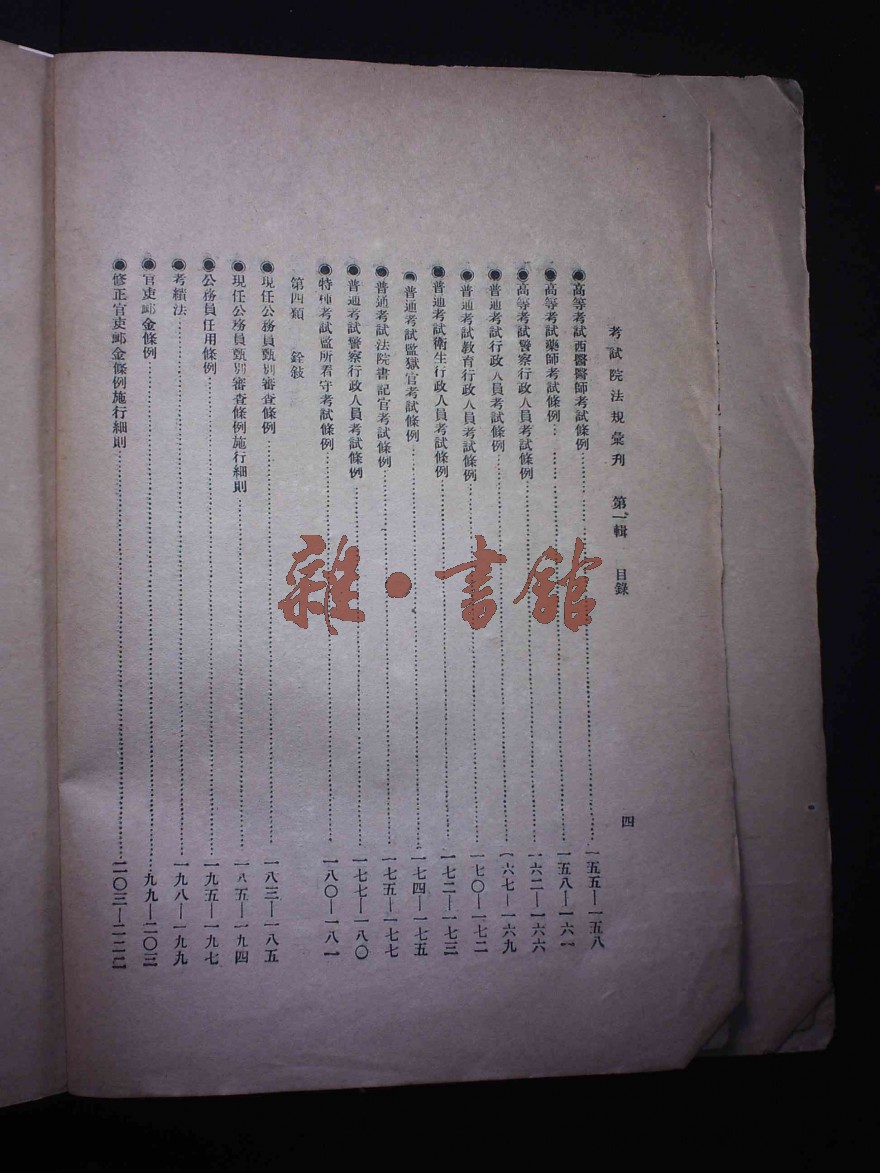 考試院法規彙刊 第一輯 目錄 四
●高等考試西醫醫師考試條例……一五五—一五八
●高等考試藥師考試條例……一五八—一六一
●高等考試警察行政人員考試條例……一六二—一六六
●普通考試行政人員考試條例……一六七—一六九
●普通考試教育行政人員考試條例……一七〇—一七二
●普通考試衛生行政人員考試條例……一七二—一七三
●普通考試監獄官考試條例……一七四—一七五
●普通考試法院書記官考試條例……一七五—一七七
●普通考試警察行政人員考試條例……一七七—一八〇
●特種考試監所看守考試條例……一八〇—一八一
第四類 銓敍
●現任公務員甄別審查條例……一八三—一八五
●現任公務員甄別審查條例施行細則……一八五—一九四
●公務員任用條例……一九五—一九七
●考績法……一九八—一九九
●官吏卹金條例……九九—二〇三
●修正官吏卹金條例施行細則……二〇三—二二二
雜·書館